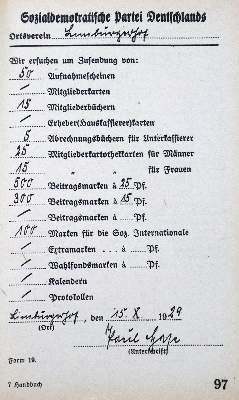 Sozialdemokratische Partei Deutschlands
Ortsverein Limburgerhof
Wir ersuchen um Zusendung von:
50 Aufnahmescheinen
/ Mitgliederkarten
15 Mitgliederbüchern
/ Erheber(Hauskassierer)karten
5 Abrechnungsbüchern für Unterkassierer
25 Mitgliederkartothekkarten für Männer
15 " " für Frauen
500 Beitragsmarken à 25 Pf.
300 Beitragsmarken à 15 Pf.
/ Beitragsmarken à / Pf.
100 Marken für die Soz. Internationale
/ Extramarken . . à / Pf.
/ Wahlfondsmarken à / Pf.
/ Kalendern
/ Protokollen
Limburgerhof, den 15. 8. 1929
(Ort)
Paul
(Unterschrift)
Form 19.
7 Handbuch 97